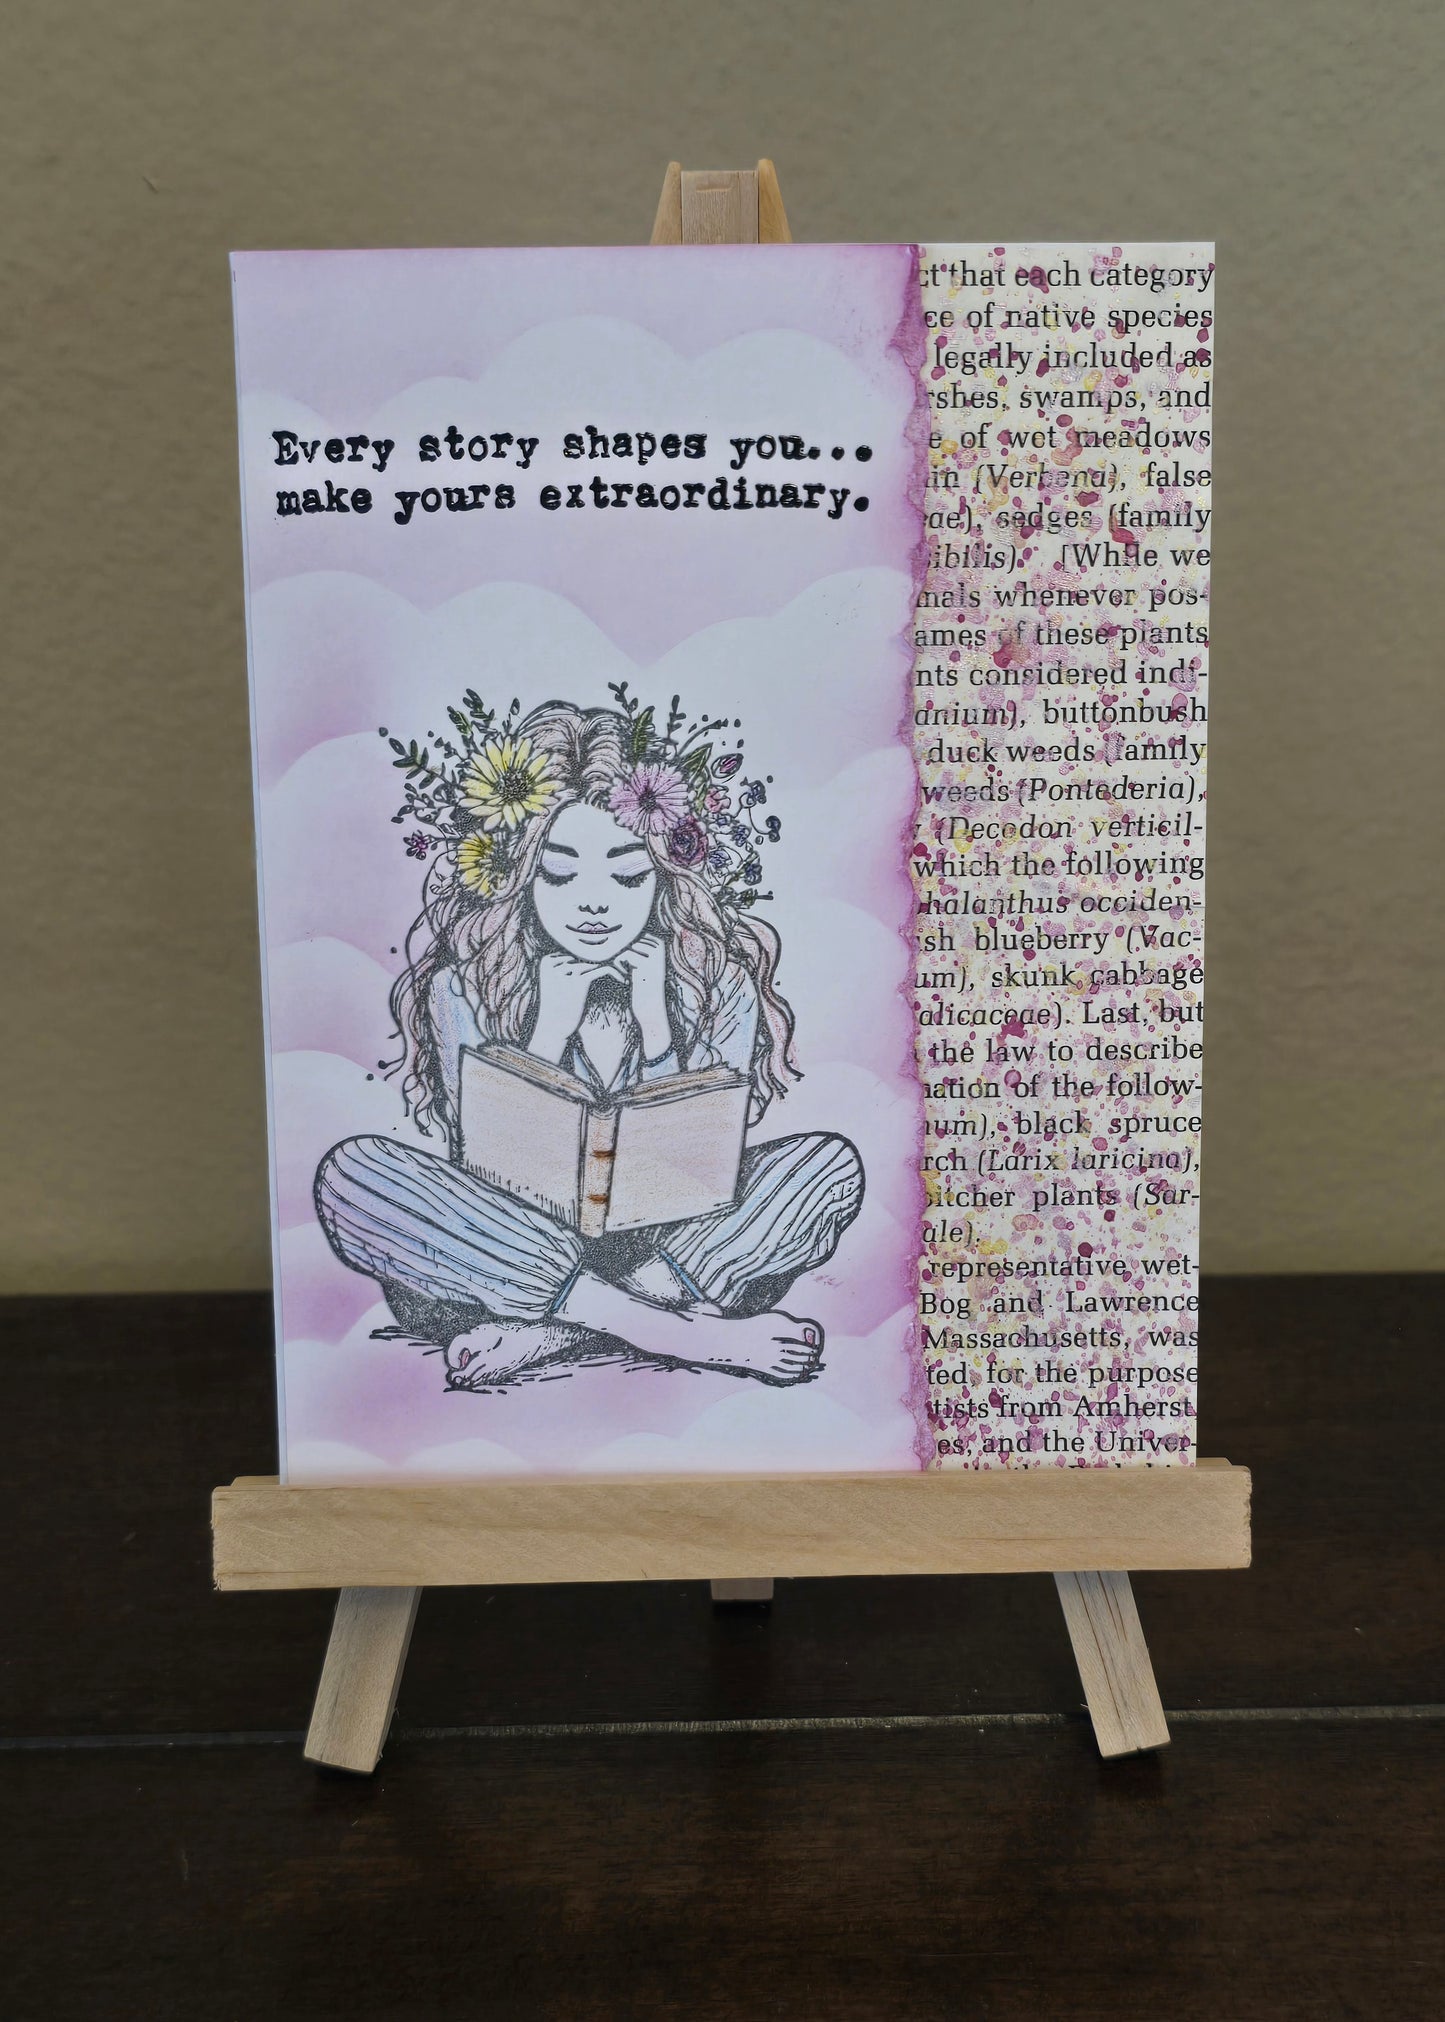 Every story shapes you...
make yours extraordinary.
ct that each category
ce of native species
legally included as
rshes, swamps, and
e of wet meadows
in (Verbena), false
ae), sedges (family
ibilis). [While we
mals whenever pos-
ames of these plants
nts considered indi-
anium), buttonbush
duck weeds (family
weeds (Pontederia),
(Decodon verticil-
which the following
halanthus occiden-
sh blueberry (Vac-
um), skunk cabbage
alicaceae). Last, but
the law to describe
nation of the follow-
num), black spruce
rch (Larix laricina),
pitcher plants (Sar-
ale).
representative wet-
Bog and Lawrence
Massachusetts, was
ted, for the purpose
tists from Amherst,
es, and the Univer-